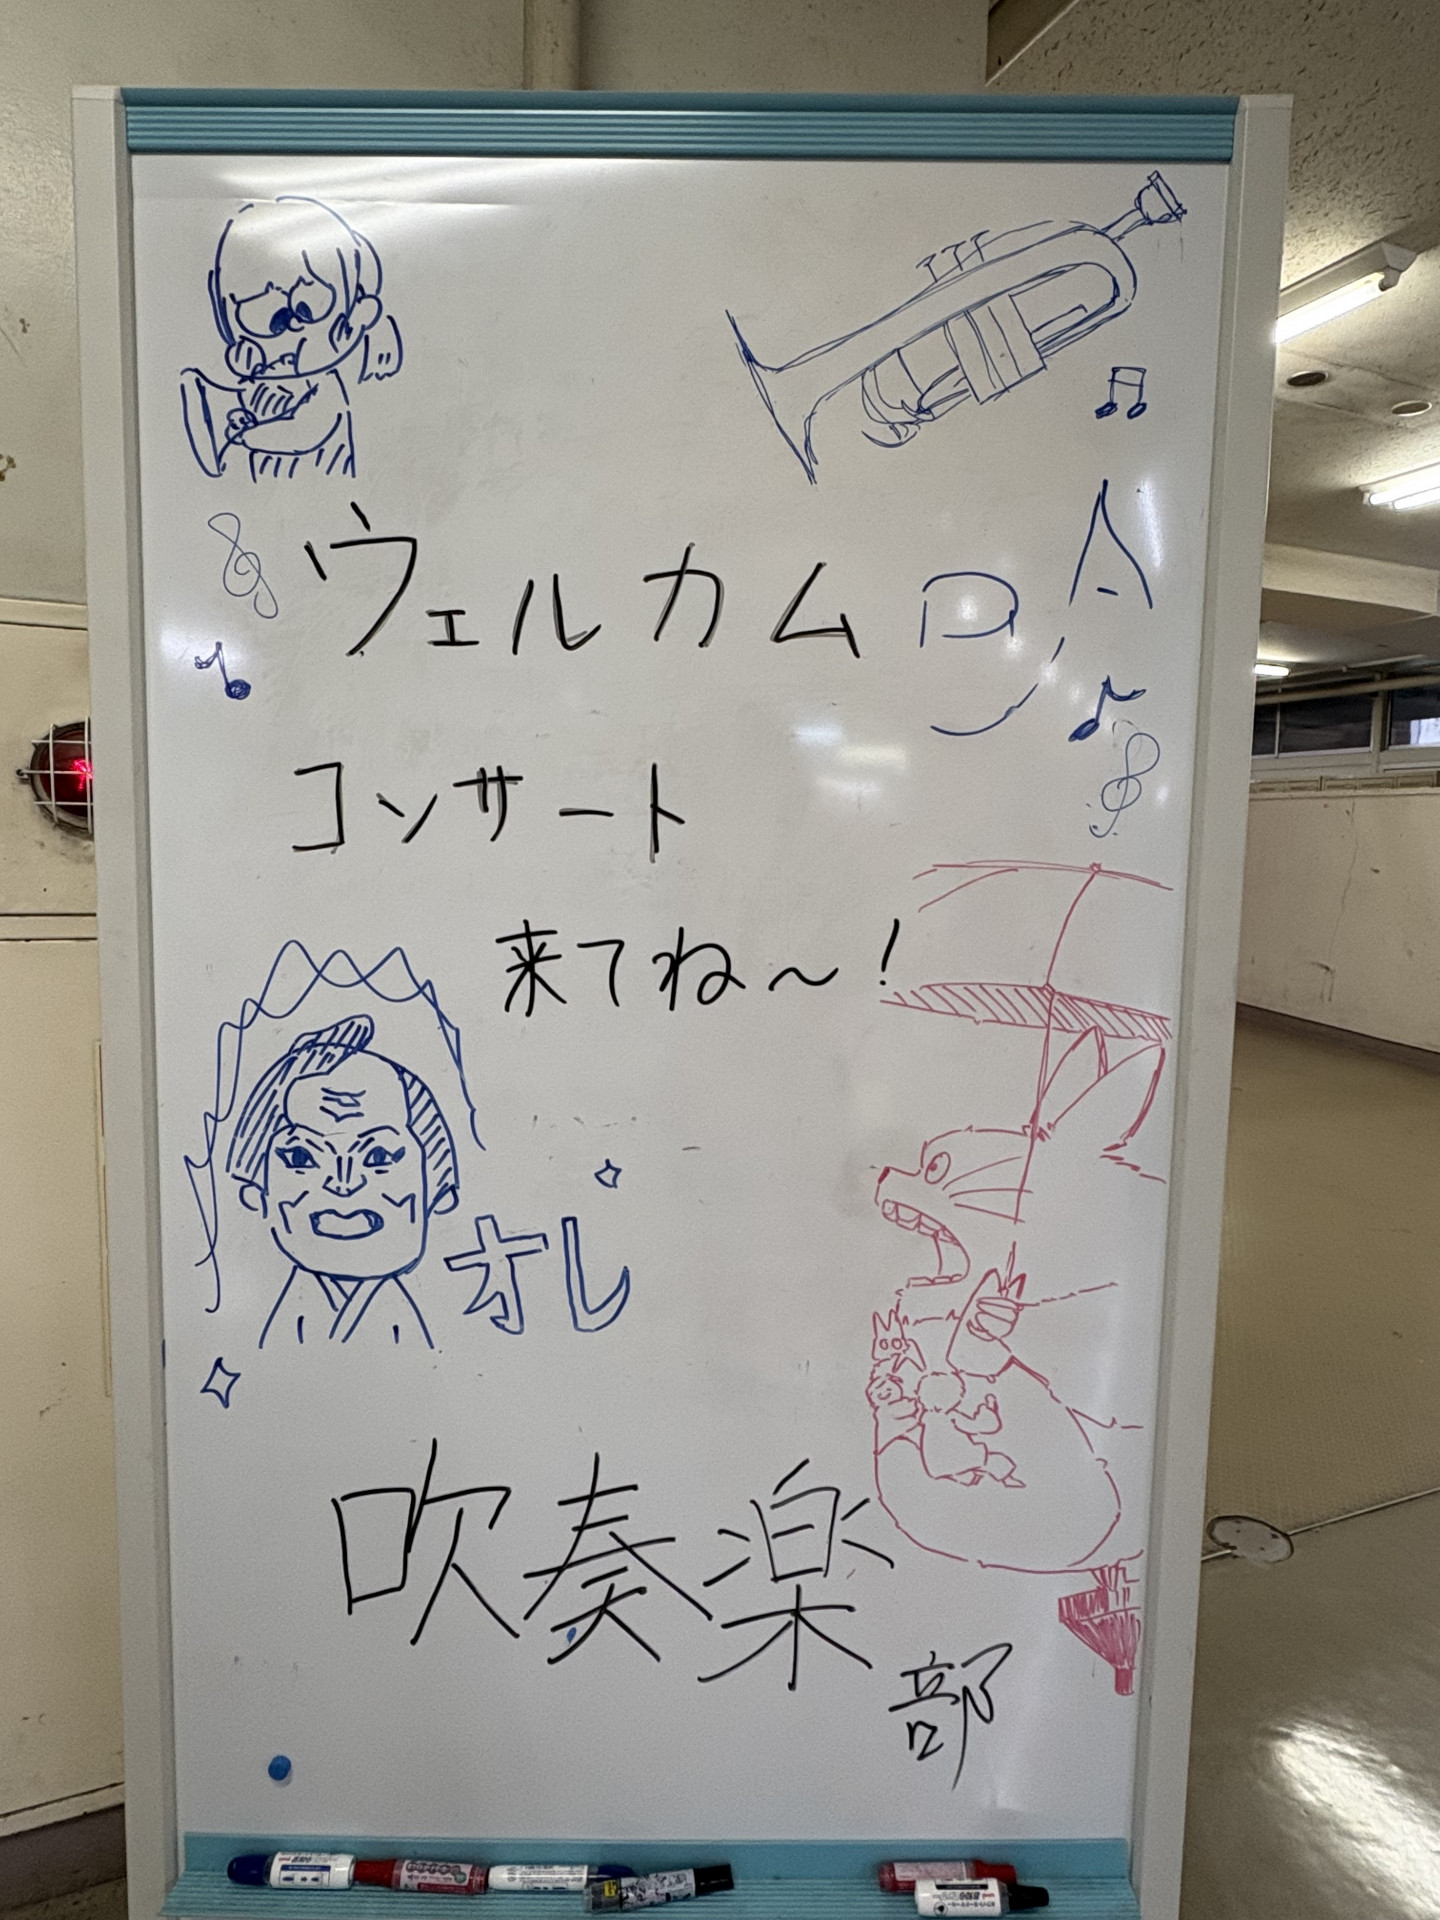 ウェルカム
コンサート
来てね〜!
オレ
吹奏楽
部